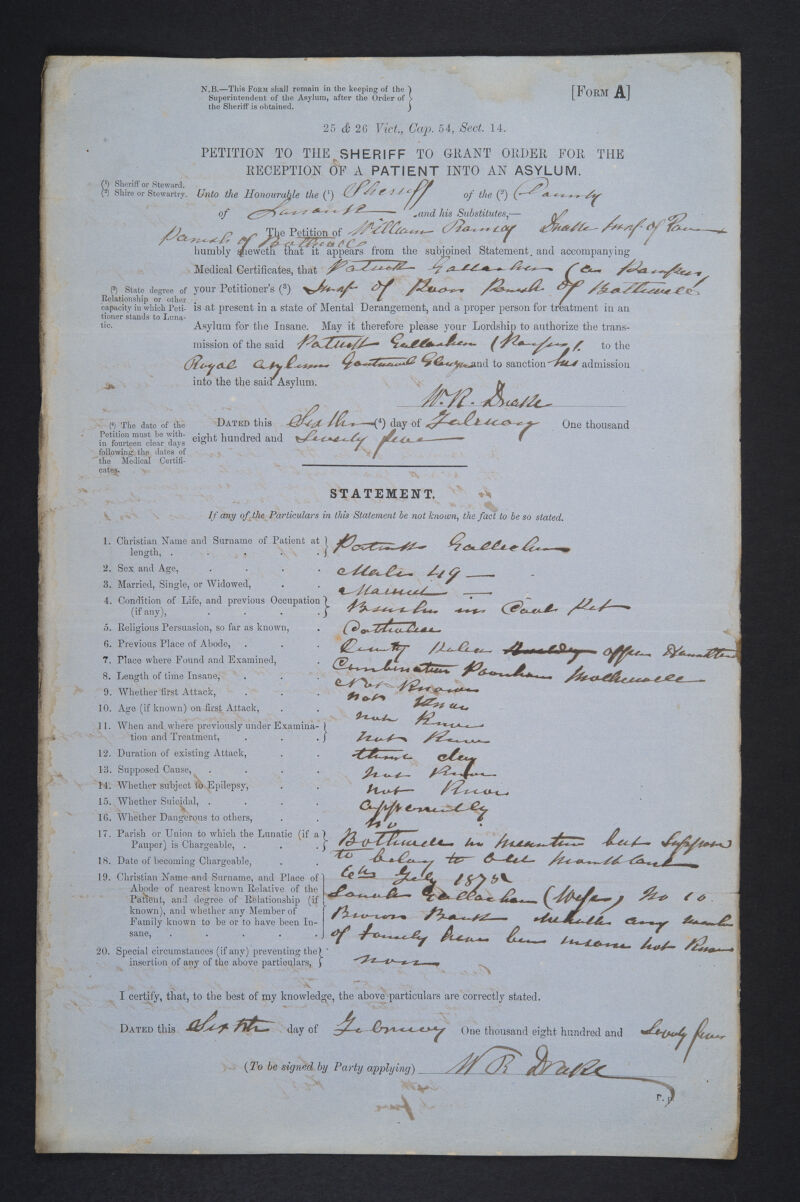 N.B.—This Form shall remain in the keeping of the
Superintendent of the Asylum, after the Order of
the Sheriff is obtained.
[Form A]
25 & 26 Vict., Cap. 54, Sect. 14.
PETITION TO THE SHERIFF TO GRANT ORDER FOR THE
RECEPTION OF A PATIENT INTO AN ASYLUM.
(1) Sheriff or Steward.
(2) Shire or Stewartry.
Unto the Honourable the (1) Sheriff of the (2) County
of Lanark and his Substitutes,—
The Petition of William Ramsay Drake Insp. of Poor
Parish of Bothwell
humbly sheweth that it appears from the subjoined Statement and accompanying
Medical Certificates, that Patrick Gallachur (a Pauper)
(3) State degree of
Relationship or other
capacity in which Peti-
tioner stands to Luna-
tic.
your Petitioner's (3) Insp of Poor Parish of Bothwell
is at present in a state of Mental Derangement, and a proper person for treatment in an
Asylum for the Insane. May it therefore please your Lordship to authorize the trans-
mission of the said Patrick Gallachur (Pauper), to the
Royal Asylum Gartnavel Glasgow and to sanction his admission
into the the said Asylum.
W. R. Drake
(4) The date of the
Petition must be with-
in fourteen clear days
following the dates of
the Medical Certifi-
cates.
Dated this Sixth (4) day of February One thousand
eight hundred and Seventy five
STATEMENT.
If any of the Particulars in this Statement be not known, the fact to be so stated.
1. Christian Name and Surname of Patient at
length, Patrick Gallachur
2. Sex and Age, Male 49 —
3. Married, Single, or Widowed, Married —
4. Condition of Life, and previous Occupation
(if any), in Coal Pit
5. Religious Persuasion, so far as known, Catholic
6. Previous Place of Abode, County Police office Hamilton
7. Place where Found and Examined, Combination Poorhouse Motherwell
8. Length of time Insane, Not Known
9. Whether first Attack, not Know
10. Age (if known) on first Attack, not Know
11. When and where previously under Examina-
tion and Treatment, not Know
12. Duration of existing Attack, day
13. Supposed Cause, not Know
14. Whether subject to Epilepsy, not Know
15. Whether Suicidal, apparently
16. Whether Dangerous to others, no
17. Parish or Union to which the Lunatic (if a
Pauper) is Chargeable, Bothwell in meantime but Suppose
to belong to Old Monkland
18. Date of becoming Chargeable, 6th Feby 1875
19. Christian Name and Surname, and Place of
Abode of nearest known Relative of the
Patient, and degree of Relationship (if
known), and whether any Member of
Family known to be or to have been In-
sane, Sarah Gallachur (Wife) No 10
Brown Bank Whether any member
of family have been insane not Known
20. Special circumstances (if any) preventing the
insertion of any of the above particulars, none
I certify, that, to the best of my knowledge, the above particulars are correctly stated.
Dated this Sixth day of February One thousand eight hundred and Seventy five
(To be signed by Party applying) W R Drake